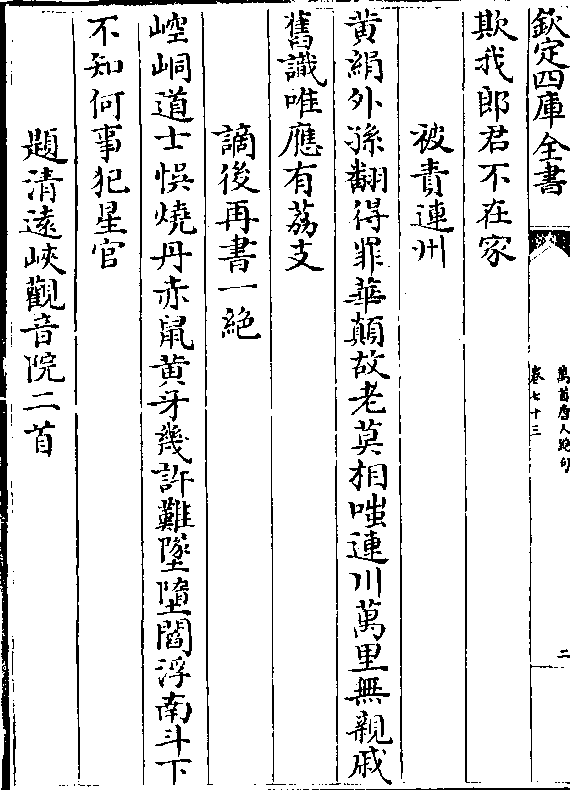 欽定四庫全書
萬首唐人絶句
卷七十三
二
欺我郎君不在家
被責連州
黄絹外孫翻得罪華顛故老莫相嗤連川萬里無親戚
舊識唯應有荔支
謫後再書一絶
崆峒道士悞燒丹赤鼠黄牙幾許難墜墮閻浮南斗下
不知何事犯星官
題清遠峽觀音院二首